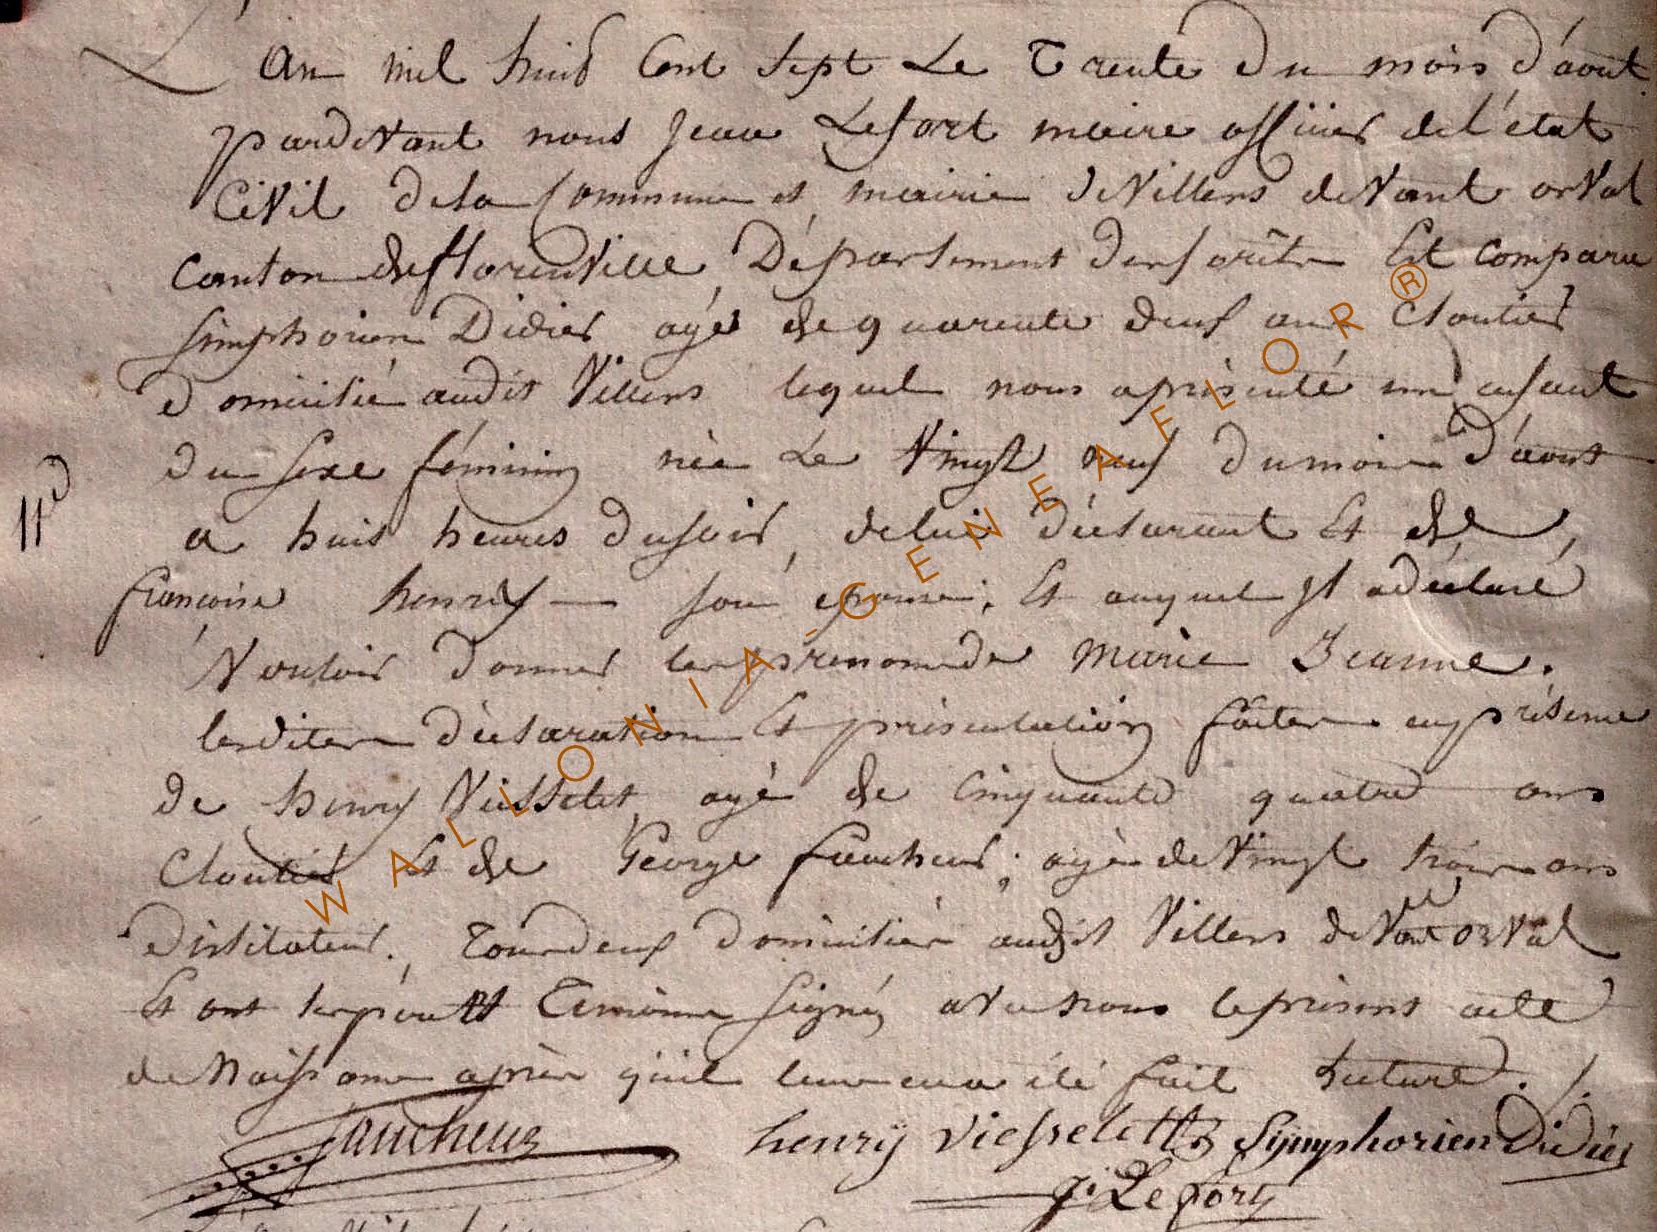 L'An mil huit Cent Sept Le Trente Du mois d'aout
pardevant nous Jean Lefort maire officier de l'état
Civil de la Commune et mairie de Villers devant orval
Canton de florenville, Département des forêts Est comparu
Simphorien Didier agé de quarente deux ans Cloutier
domicilié audit Villers lequel nous a présenté un enfant
du sexe féminin née Le Vingt neuf du mois d'aout
11e
a huit heures du soir, de lui déclarant Et de
françoise henry — son épouse, Et auquel Il a déclaré
Vouloir donner les prenoms de Marie Jeanne.
lesdites déclaration Et présentation faites en présence
de henry Viesselet agé de Cinquante quatre ans
Cloutier Et de George faucheur, agé de Vingt trois ans
instituteur, Tous deux domiciliés audit Villers devant orval
Et ont les père Et Temoins Signés avec nous le présent acte
de Naissance après qu'il leur en a été fait lecture ./.
faucheur henrÿ Viesselett Sÿmphorien Didier
J. Lefort
WALLONIA-GENEAFLOR®